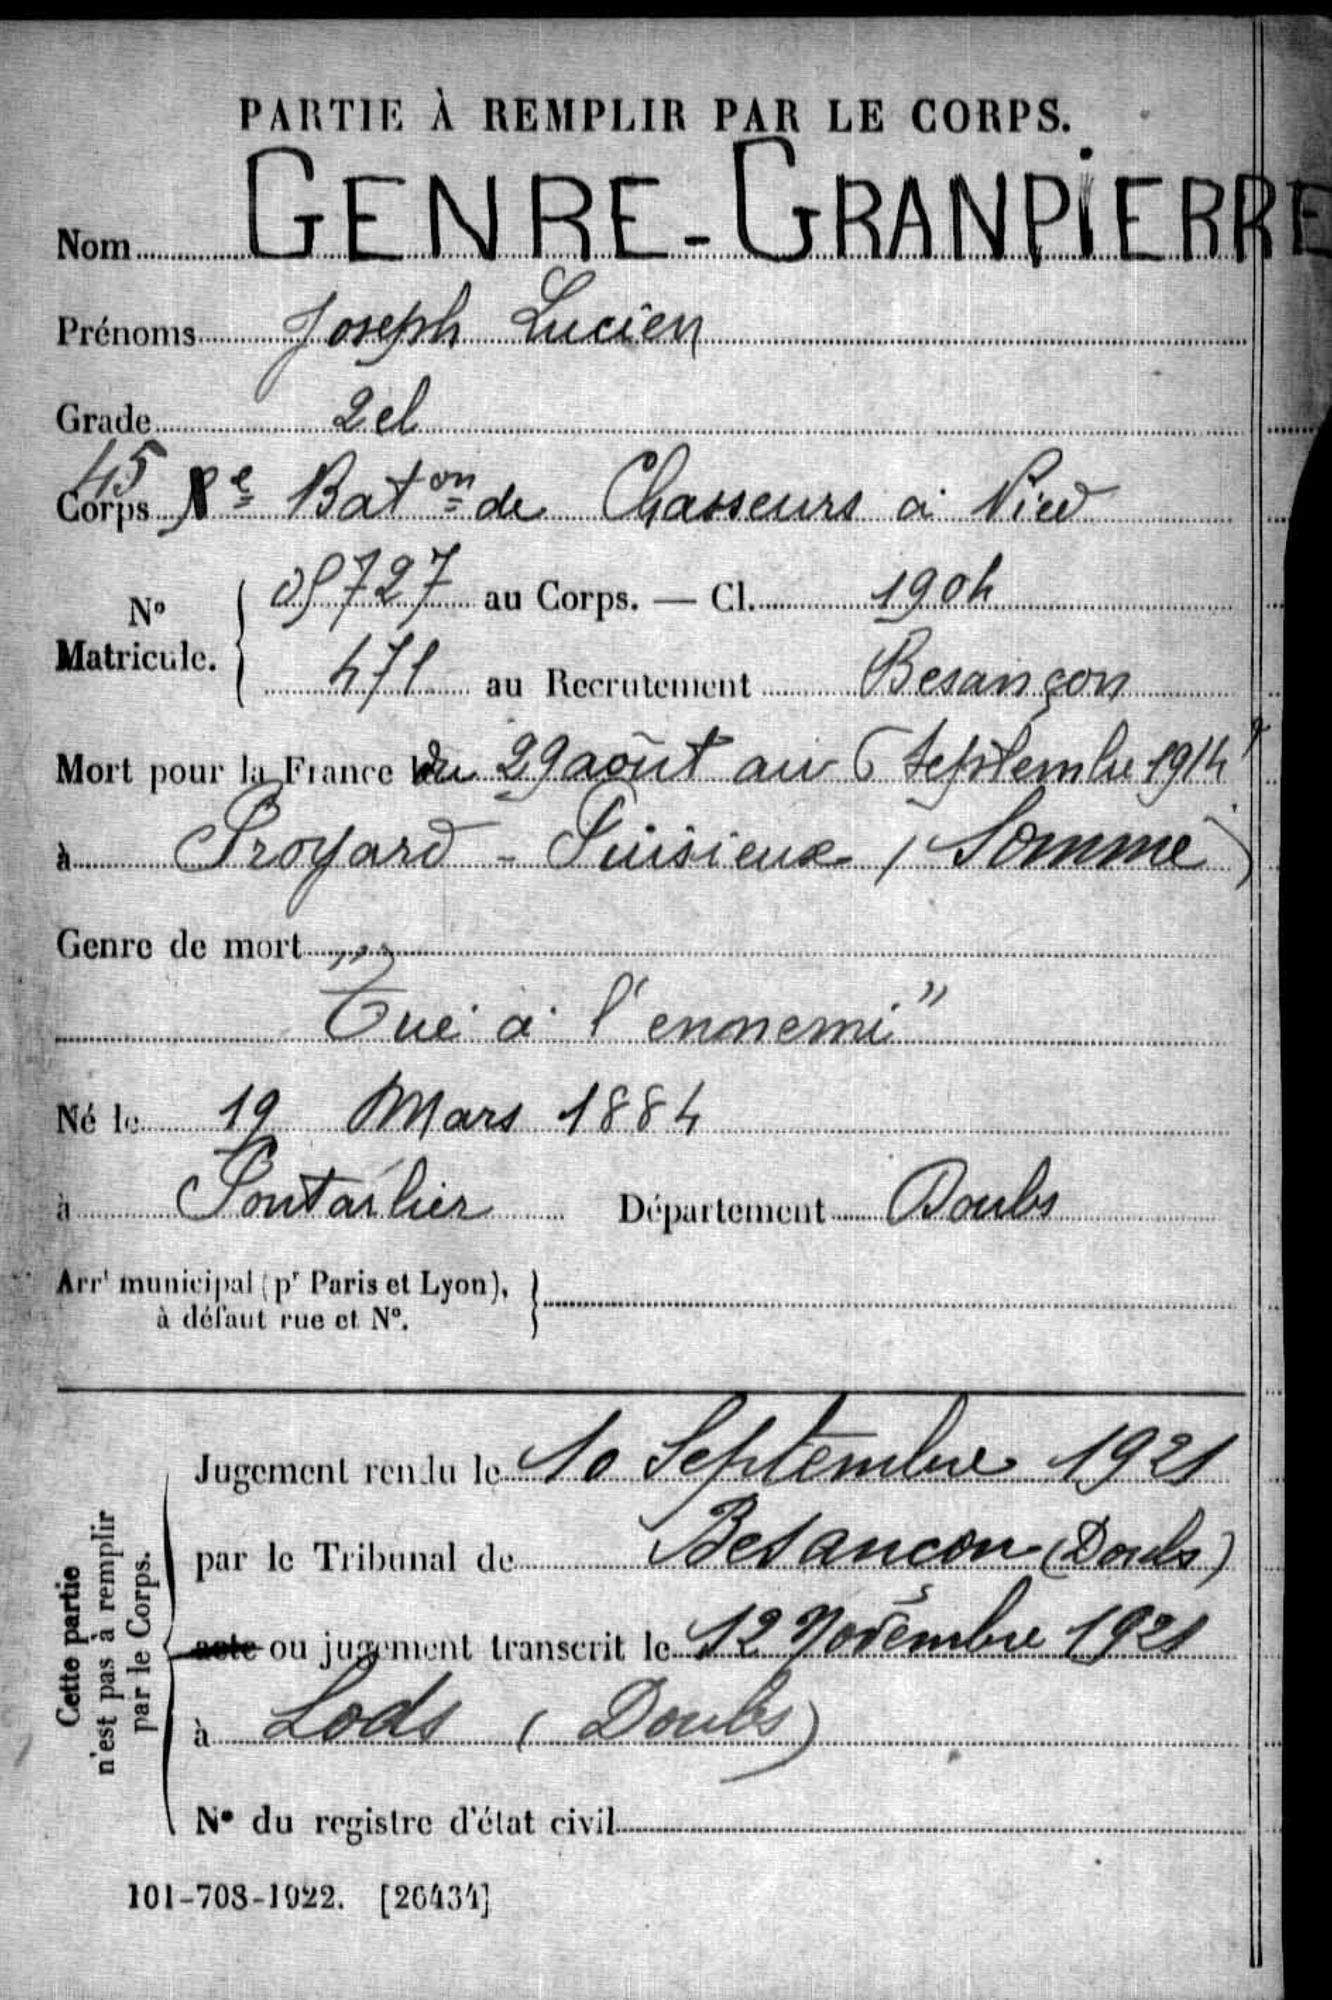 PARTIE À REMPLIR PAR LE CORPS.
Nom GENRE-GRANPIERRE
Prénoms Joseph Lucien
Grade 2el
Corps 45e Baton de Chasseurs à Pied
No Matricule. 727 au Corps. — Cl. 1904
471 au Recrutement Besançon
Mort pour la France du 29 août au 6 Septembre 1914
à Proyard - Puisieux (Somme)
Genre de mort
"Tué à l'ennemi"
Né le 19 Mars 1884
à Pontarlier Département Doubs
Arrt municipal (pr Paris et Lyon),
à défaut rue et No.
Cette partie
n'est pas à remplir
par le Corps.
Jugement rendu le 10 Septembre 1921
par le Tribunal de Besançon (Doubs)
acte ou jugement transcrit le 12 Novembre 1921
à Lods (Doubs)
No du registre d'état civil
101-708-1922. [26434]